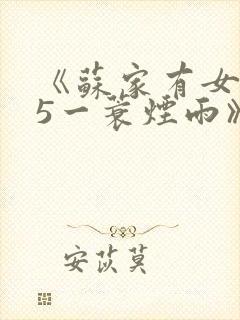 《蘇家有女
5一蓑煙雨》
安苡莫